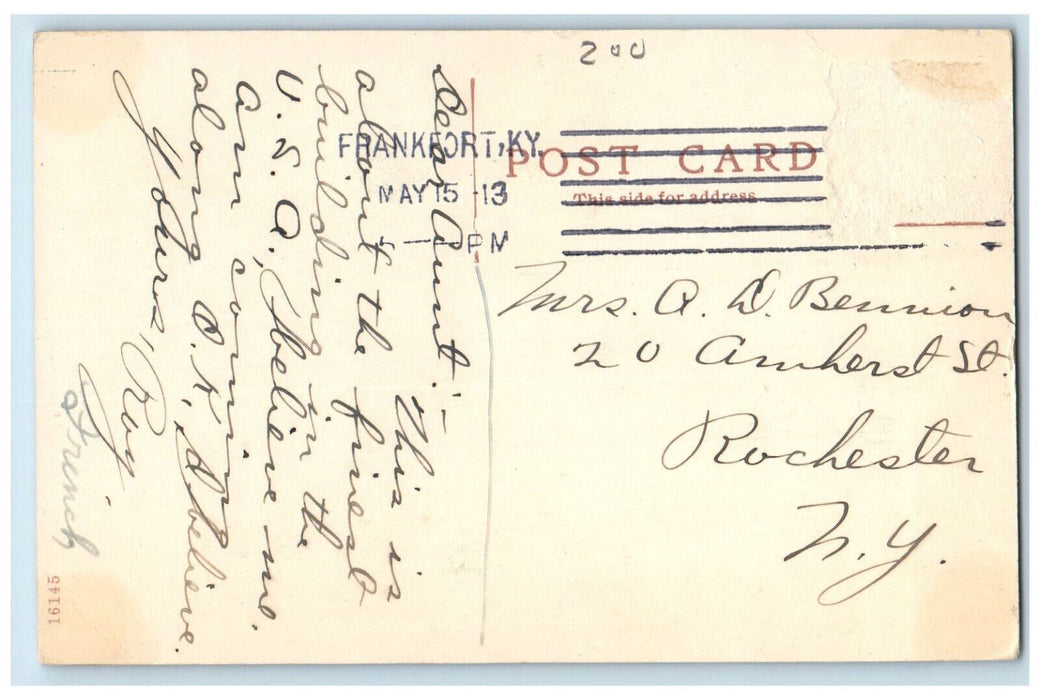 200
FRANKFORT, KY.
MAY 15 -13
5 — PM
POST CARD
This side for address
Mrs. A. D. Bennion
20 Amherst St.
Rochester
N.Y.
Dear Aunt:-
This is
about the finest
building in the
U.S.A., believe me.
Am coming
along O.K., I believe.
Yours, Roy
French
16145